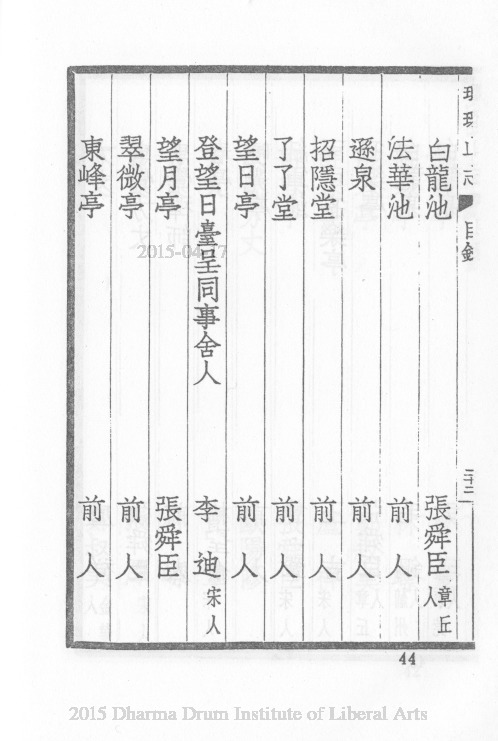 琅琊山志 目錄 二十二
白龍池 張舜臣 章丘人
法華池 前人
遜泉 前人
招隱堂 前人
了了堂 前人
望日亭 前人
登望日臺呈同事舍人 李迪 宋人
望月亭 張舜臣
翠微亭 前人
東峰亭 前人
44
2015-04-17
2015 Dharma Drum Institute of Liberal Arts